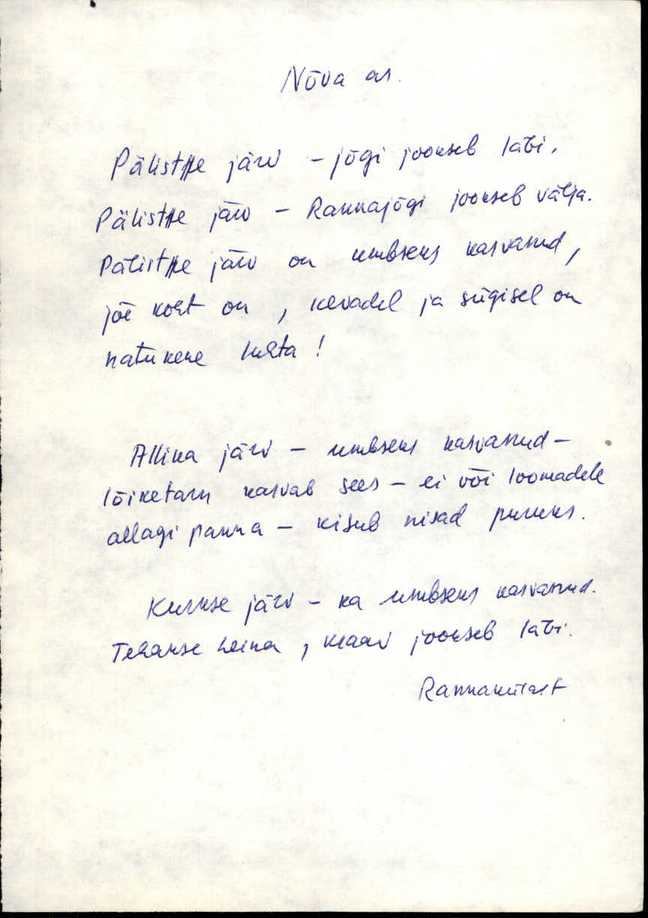 Nõva as.
Pälistpe järv – jõgi jookseb läbi,
Pälistpe järv – Rannajõgi jookseb välja.
Pälistpe järv on umbseks kasvanud,
jõe koht on, kevadel ja sügisel on
natukene luhta!
Allika järv – umbseks kasvanud –
lõiketarn kasvab sees – ei või loomadele
allagi panna – kisub nisad puruks.
järv – ka umbseks kasvanud.
Tehakse heina, kraav jookseb läbi.
Rannakülast